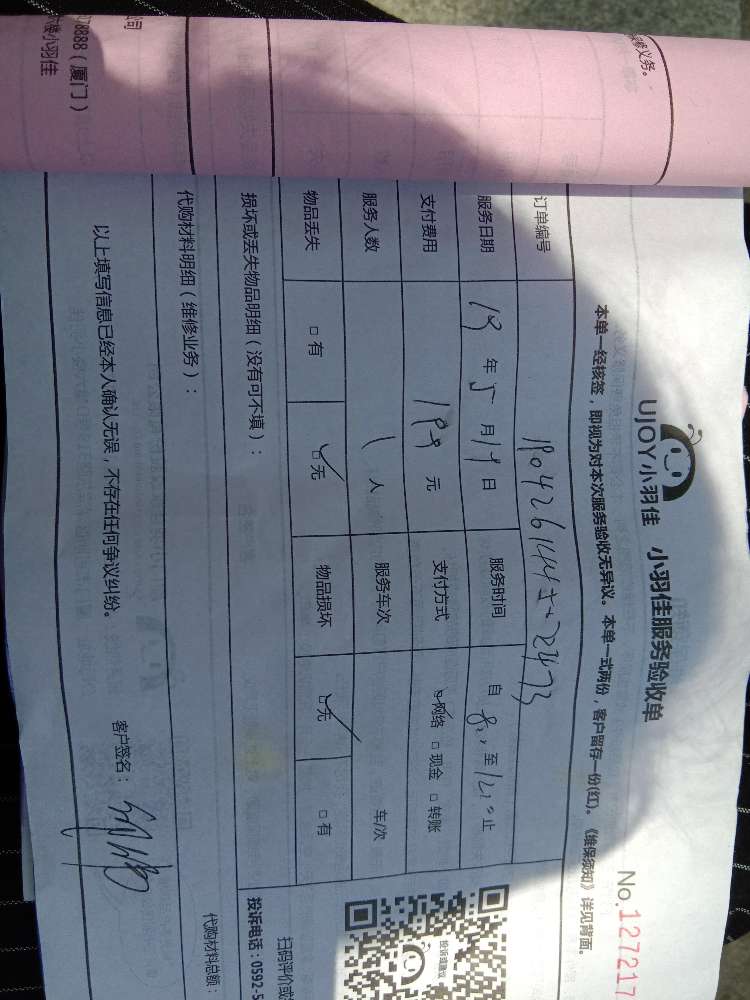 修义务。
公司
78888（厦门）
小羽佳
UJOY小羽佳 小羽佳服务验收单
No.127217
本单一经核签，即视为对本次服务验收无异议。本单一式两份，客户留存一份(红)。《维保须知》详见背面。
订单编号
服务日期 19 年 5 月 19 日 服务时间 自 至 止
支付费用 199 元 支付方式 网络 □ 现金 □ 转账
服务人数 1 人 服务车次 车/次
物品丢失 □ 有 □ 无 物品损坏 □ 无 □ 有
损坏或丢失物品明细（没有可不填）：
代购材料明细（维修业务）：
代购材料总额：
以上填写信息已经本人确认无误，不存在任何争议纠纷。
客户签名：
投诉或建议
扫码评价或
投诉电话：0592-5